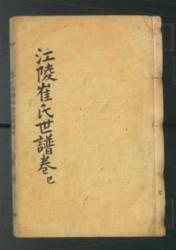 江陵崔氏世譜卷已